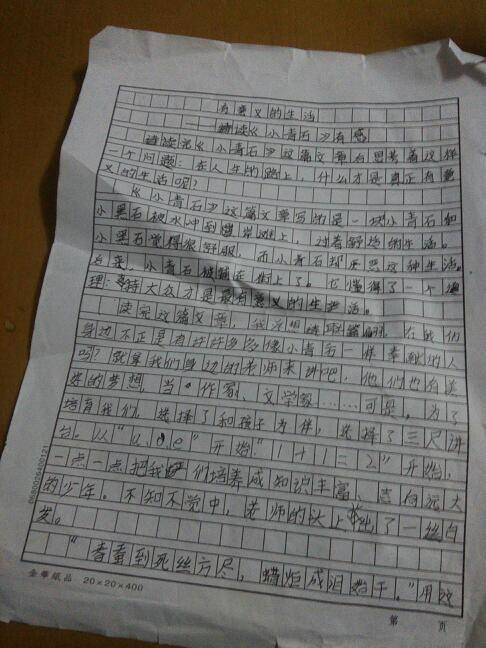 有意义的生活
——读《小青石》有感
读完《小青石》这篇文章后思考着这样
一个问题:在人生的路上,什么才是真正有意
义的生活呢?
《小青石》这篇文章写的是一块小青石和
小黑石被水冲到岸滩上,过着舒适的生活。
小黑石觉得很舒服,而小青石却厌恶这种生活。
后来,小青石被铺在街上了。它懂得了一个道
理:为大众才是最有意义的生活。
读完这篇文章,我浮想联翩。在我们
身边不正是有许许多多像小青石一样奉献的人
吗?就拿我们身边的老师来讲吧,他们也有美
好的梦想,当“作家、文学家……可是,为了
培育我们,选择了和孩子为伴,选择了三尺讲
台。从“a、o、e”开始“1+1=2”开始,
一点一点把我们培养成知识丰富、志向远大
的少年。不知不觉中,老师的头上了一丝白
发。
“春蚕到死丝方尽,蜡炬成泪始干。”用这
金华纸品 20×20=400
第 页